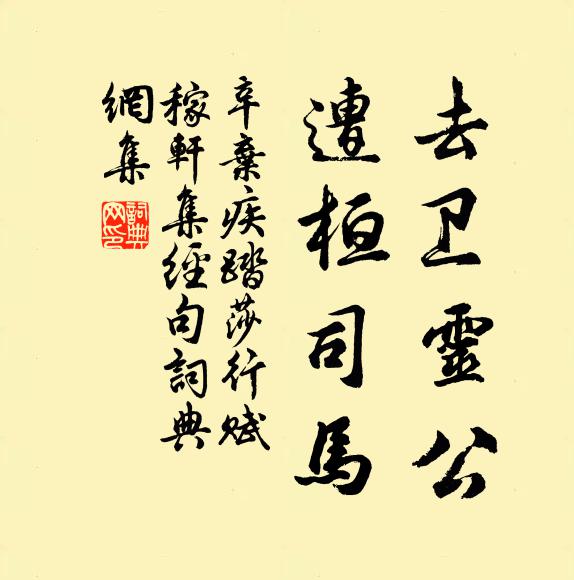 去卫靈公
遭桓司馬
辛棄疾踏莎行賦
稼軒集經句詞典
網集
詞典
网印